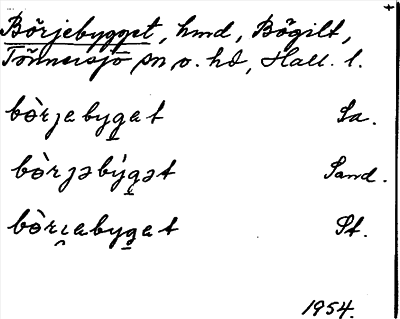 Börjebygget, hmd, Bögilt,
Tönnersjö sn o. hd, Hall. l.
bòrjabyg̲at Sa.
bòrȷəbýg̲ət Sand.
bòrı̯abyg̲at St.
1954.